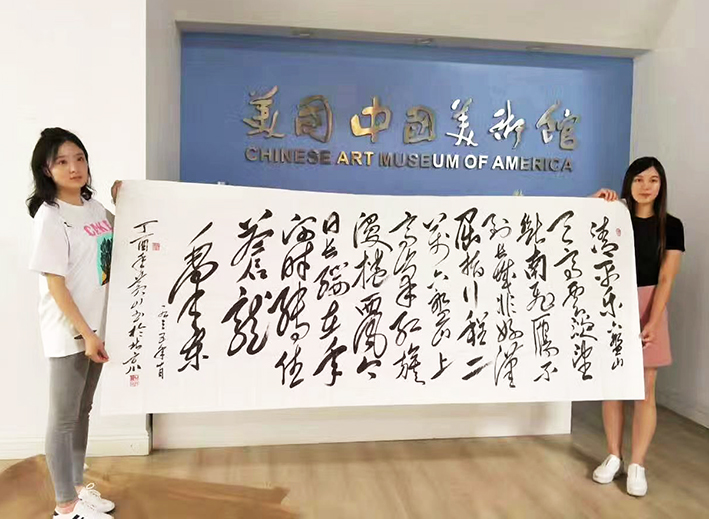 美国中国美術館
CHINESE ART MUSEUM OF AMERICA
清平乐六盘山
天高云淡望
断南飞雁不
到长城非好漢
屈指行程二
萬六盘山上
高峰红旗
漫捲西風今
日长缨在手
何時缚住
蒼龍
毛泽东
一九三五年十月